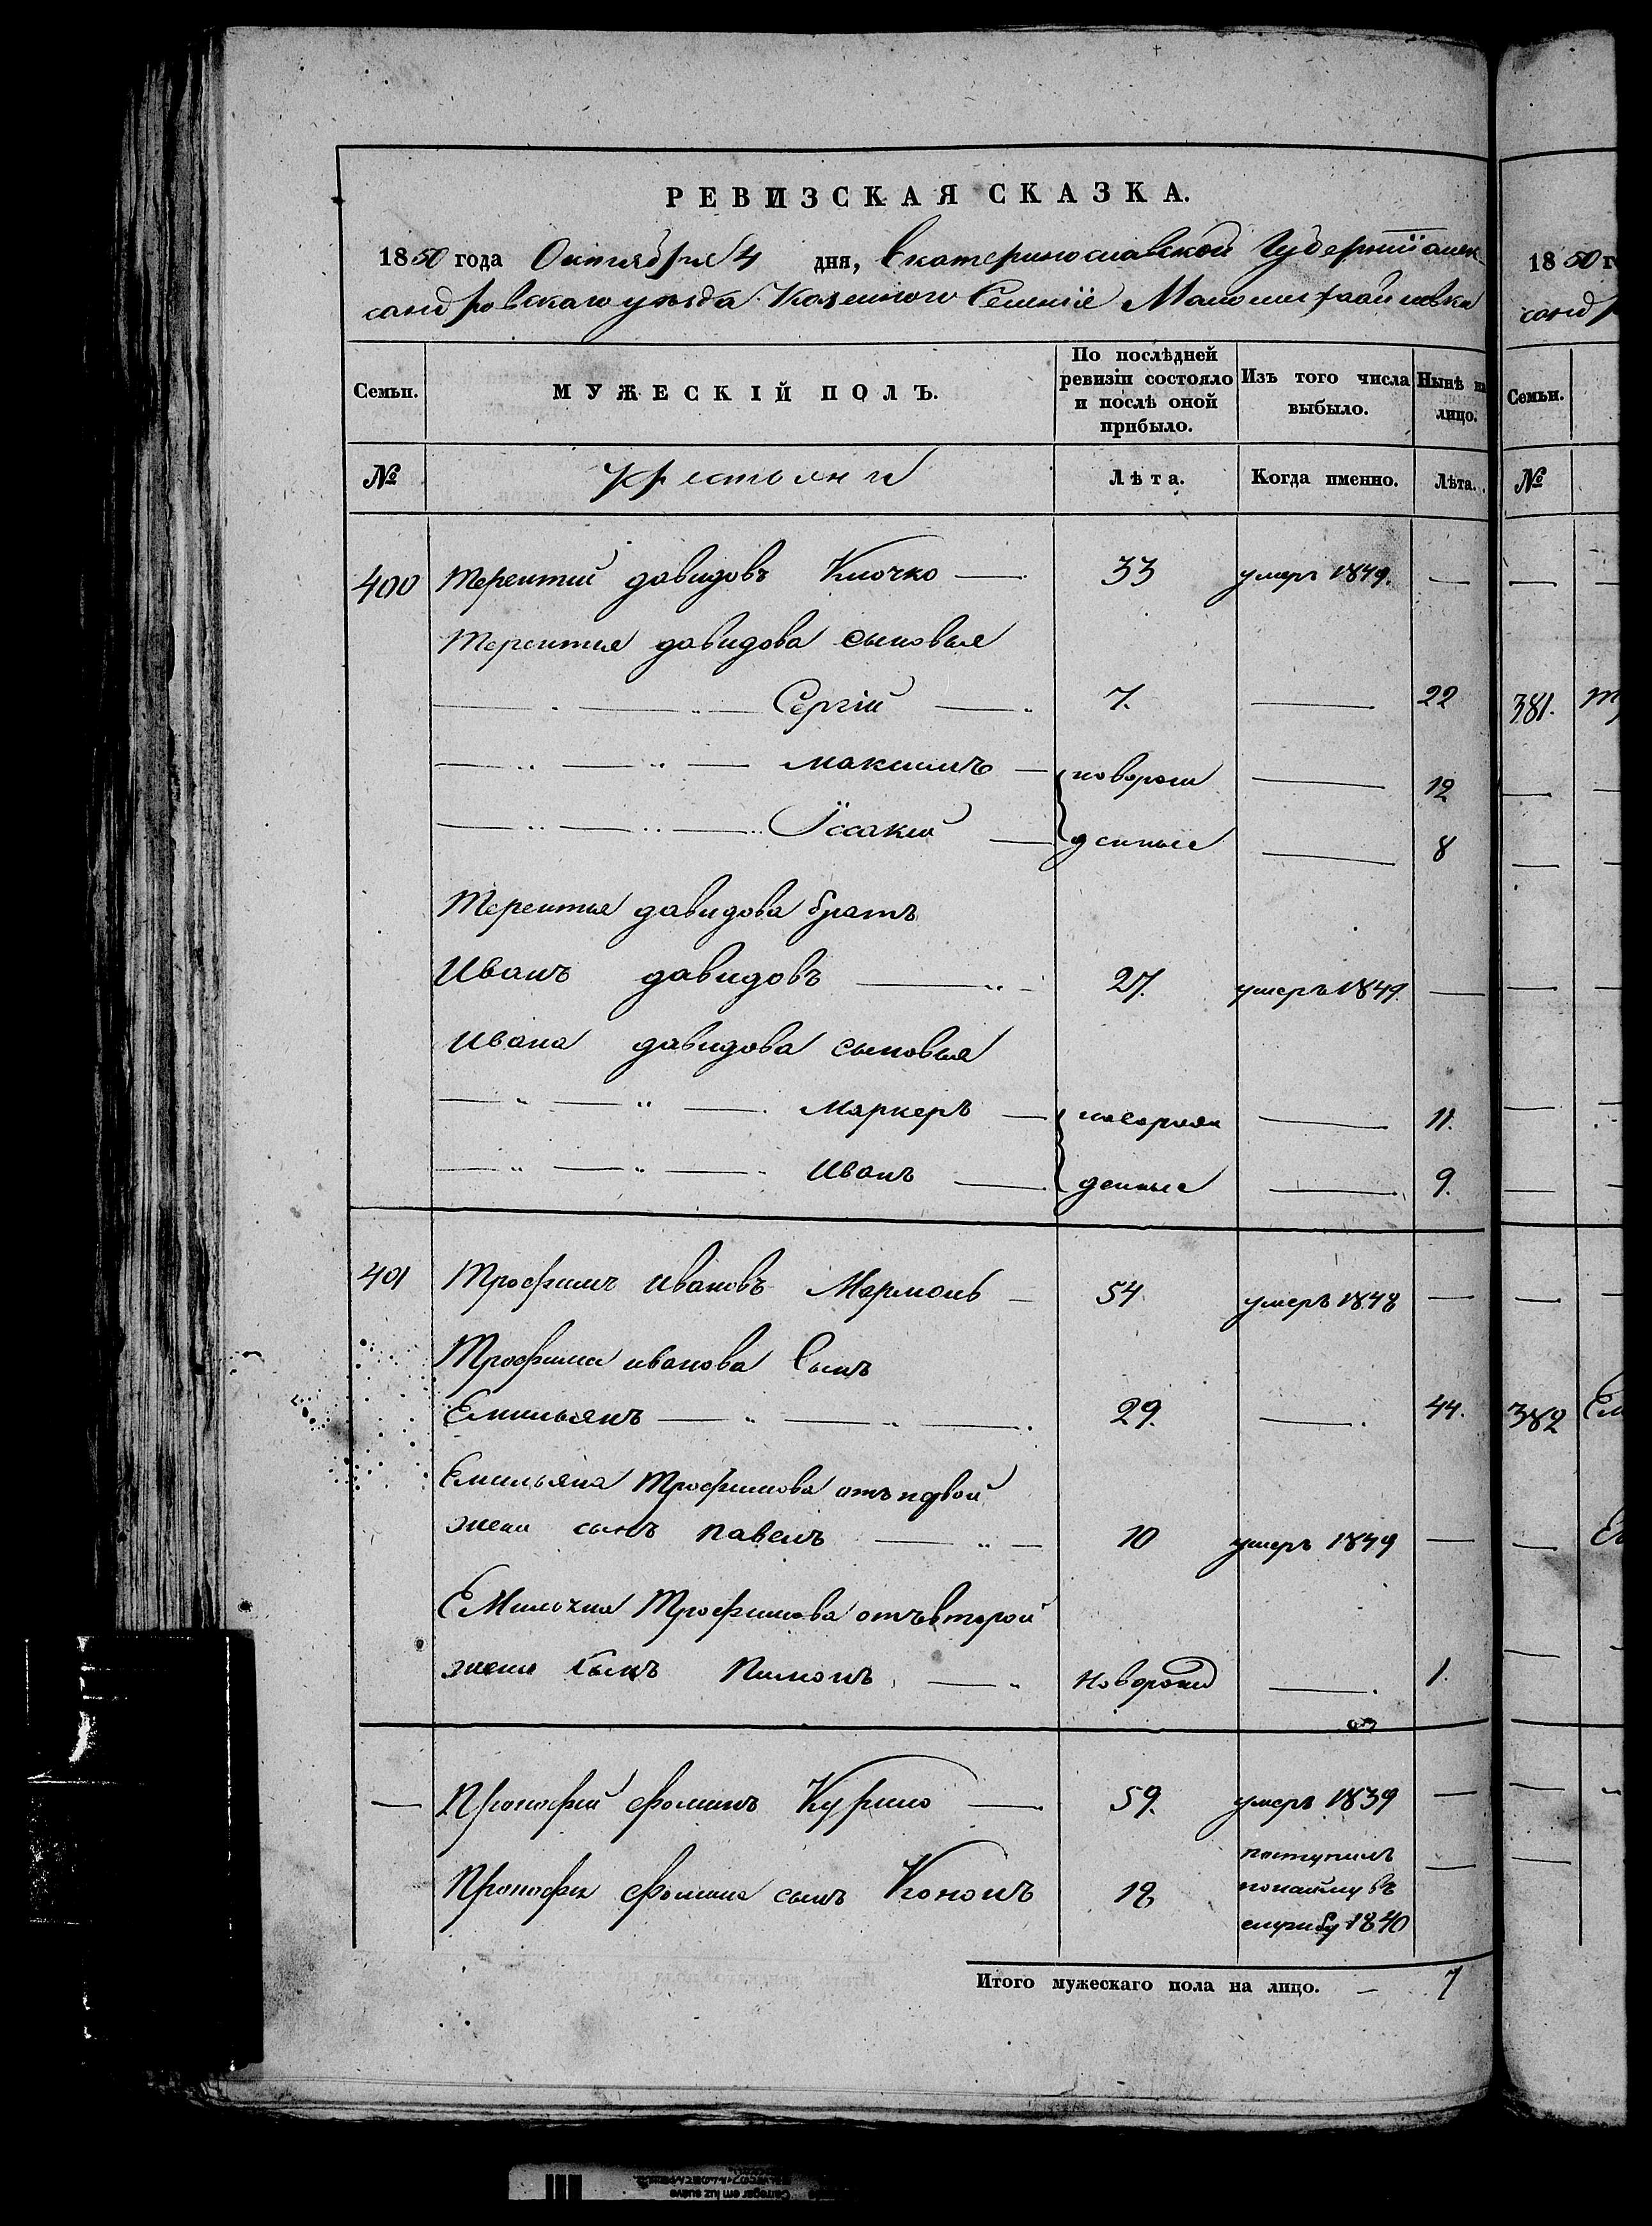 РЕВИЗСКАЯ СКАЗКА.
1850 года Октября 4 дня, Екатеринославской Губернiи алек-
сандровскаго уезда Казенного Селенiе Маломихайловки
Семьи. МУЖЕСКІЙ ПОЛЪ. По послѣдней ревизіи состояло и послѣ оной прибыло. Изъ того числа выбыло. Нынѣ на лицо.
№ Крестьяни Лѣта. Когда именно. Лѣта.
400 Терентий давидовъ Клочко — 33 умеръ 1849. —
Терентия давидова сыновья
Сергій — 7. — 22
максимъ — новорож — 12
Їссакий — денные — 8
Терентия давидова братъ
Иванъ давидовъ — 27. умеръ 1849. —
Ивана давидова сыновья
Маркеръ — новорож — 11.
Иванъ — денные — 9.
401 Трофимъ Ивановъ Мармоль — 54 умеръ 1848 —
Трофима иванова Сынъ
Емильянъ — 29. — 44.
Емильяна Трофимова отъ первой
жени сынъ павелъ — 10 умеръ 1849 —
Емильяна Трофимова отъ второй
жени Сынъ Пимонъ — Новорожд — 1.
— Прокофий фоминъ Курило — 59. умеръ 1839 —
Прокофия фомина сынъ Кононъ 18 поступилъ понайму въ службу 1840 —
Итого мужескаго пола на лицо. — 7
1850 г
санд
Семьи.
№
381.
382